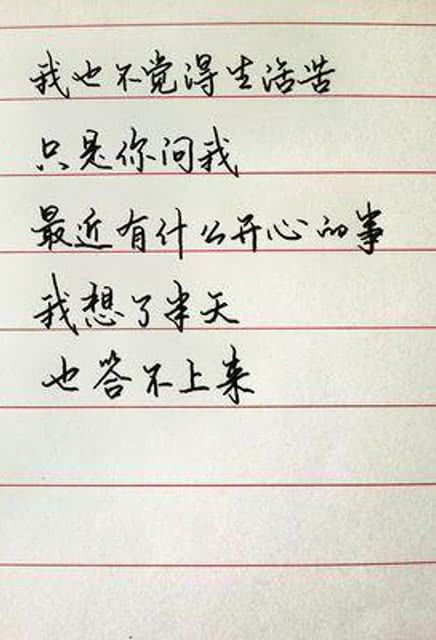 我也不觉得生活苦
只是你问我
最近有什么开心的事
我想了半天
也答不上来